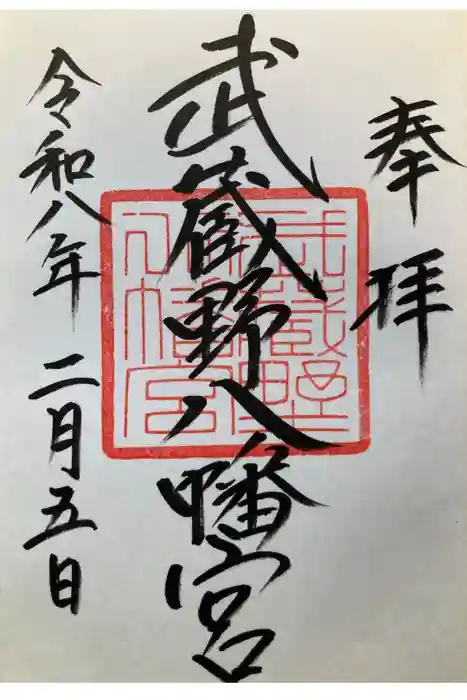 奉拝
武蔵野八幡宮
武蔵野
八幡宮
令和八年 二月五日